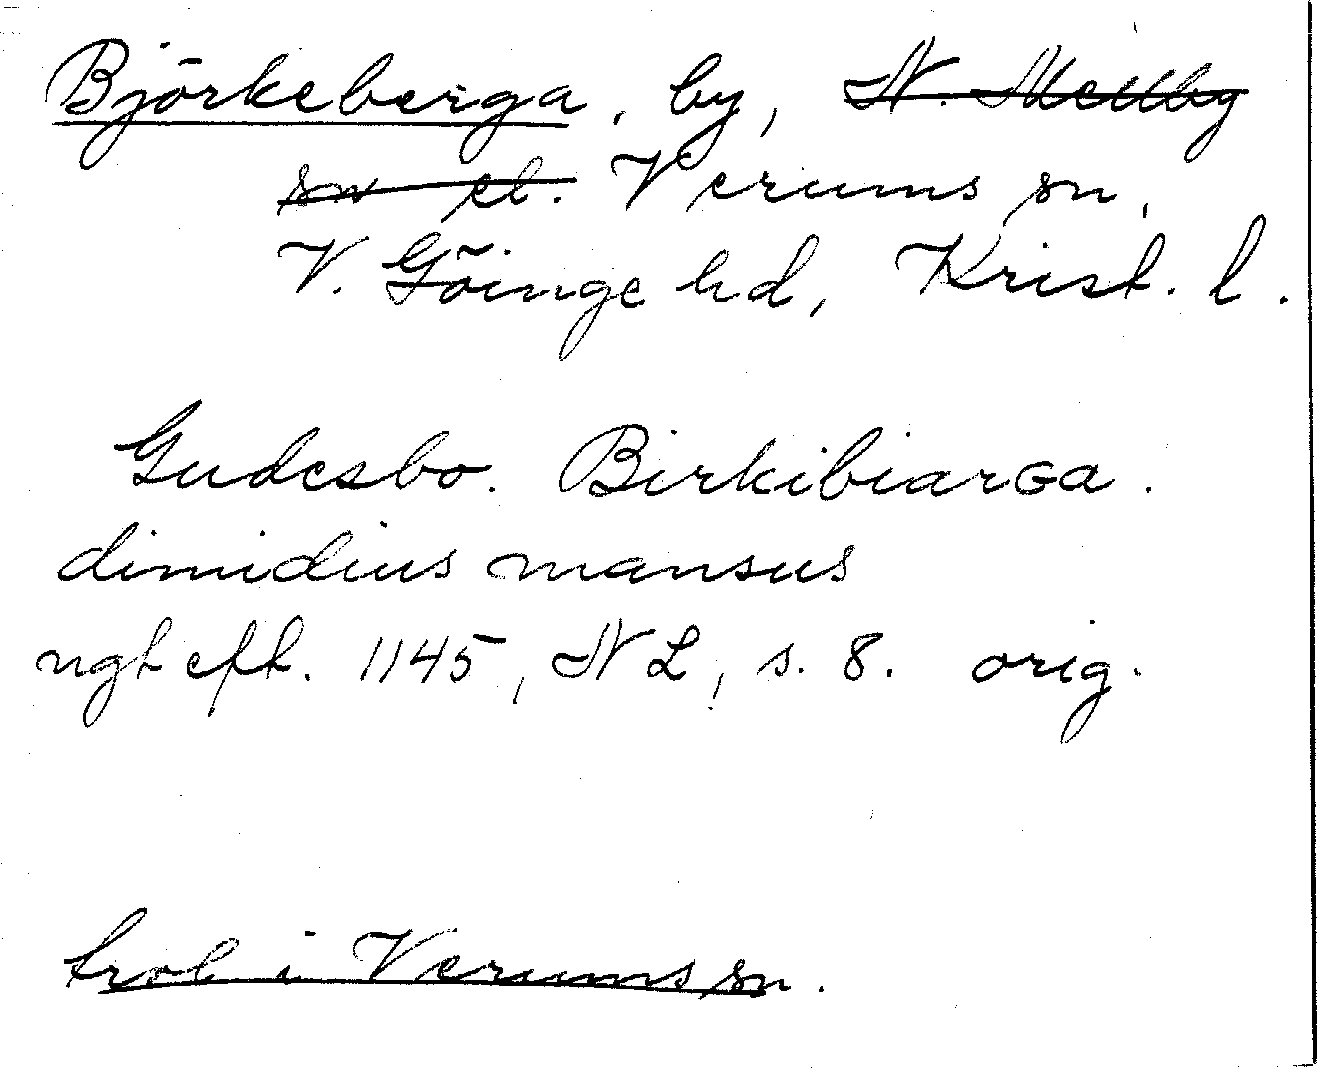 Björkeberga, by, N. Mellby
sn el. Verums sn,
V. Göinge hd, Krist. l.
Gudesbo. Birkibiarga.
dimidius mansus
ngt eft. 1145, NL, s. 8. orig.
trol i Verums sn.